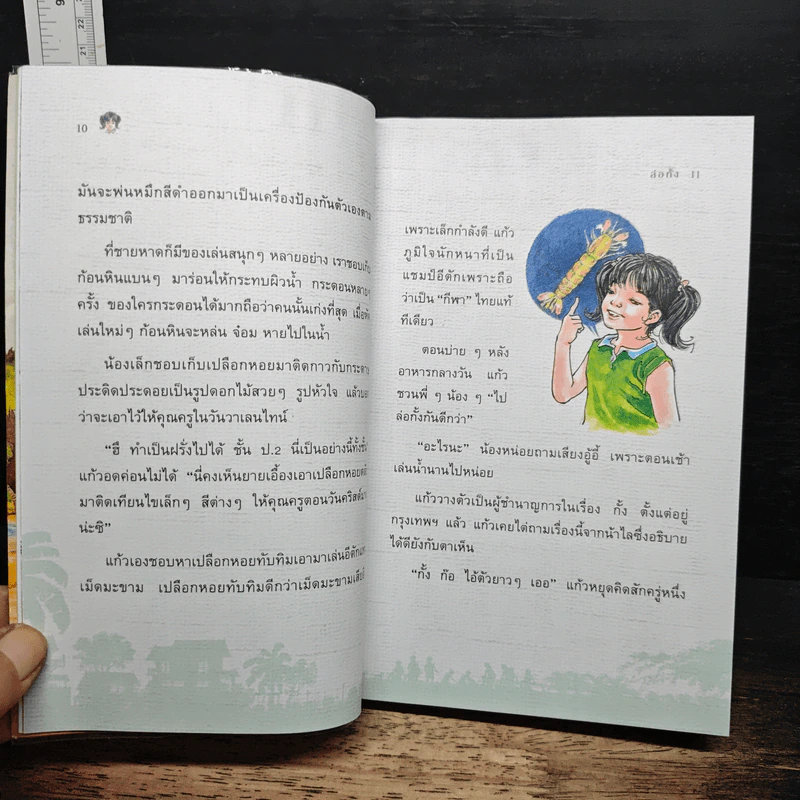 10
มันจะพ่นหมึกสีดำออกมาเป็นเครื่องป้องกันตัวเองตาม
ธรรมชาติ
ที่ชายหาดก็มีของเล่นสนุกๆ หลายอย่าง เราชอบเก็บ
ก้อนหินแบนๆ มาร่อนให้กระทบผิวน้ำ กระดอนหลายๆ
ครั้ง ของใครกระดอนได้มากถือว่าคนนั้นเก่งที่สุด เมื่อ
เล่นใหม่ๆ ก้อนหินจะหล่น จ๋อม หายไปในน้ำ
น้องเล็กชอบเก็บเปลือกหอยมาติดกาวกับกระดาษ
ประดิดประดอยเป็นรูปดอกไม้สวยๆ รูปหัวใจ แล้วบอก
ว่าจะเอาไว้ให้คุณครูในวันวาเลนไทน์
“ฮึ ทำเป็นฝรั่งไปได้ ชั้น ป.2 นี่เป็นอย่างนี้ทั้งชั้น
แก้วอดค่อนไม่ได้ “นี่คงเห็นยายเอื้องเอาเปลือกหอย
มาติดเทียนไขเล็กๆ สีต่างๆ ให้คุณครูตอนวันคริสต์มาส
น่ะซิ”
แก้วเองชอบหาเปลือกหอยทับทิมเอามาเล่นอีตักแทน
เม็ดมะขาม เปลือกหอยทับทิมดีกว่าเม็ดมะขามเสียอีก
ล่อกั้ง 11
เพราะเล็กกำลังดี แก้ว
ภูมิใจนักหนาที่เป็น
แชมป์อีตักเพราะถือ
ว่าเป็น “กีฬา” ไทยแท้
ทีเดียว
ตอนบ่าย ๆ หลัง
อาหารกลางวัน แก้ว
ชวนพี่ ๆ น้อง ๆ “ไป
ล่อกั้งกันดีกว่า”
“อะไรนะ” น้องหน่อยถามเสียงอู้อี้ เพราะตอนเช้า
เล่นน้ำนานไปหน่อย
แก้ววางตัวเป็นผู้ชำนาญการในเรื่อง กั้ง ตั้งแต่อยู่
กรุงเทพฯ แล้ว แก้วเคยไต่ถามเรื่องนี้จากน้าไลซึ่งอธิบาย
ได้ดียังกับตาเห็น
“กั้ง ก๊อ ไอ้ตัวยาวๆ เออ” แก้วหยุดคิดสักครู่หนึ่ง